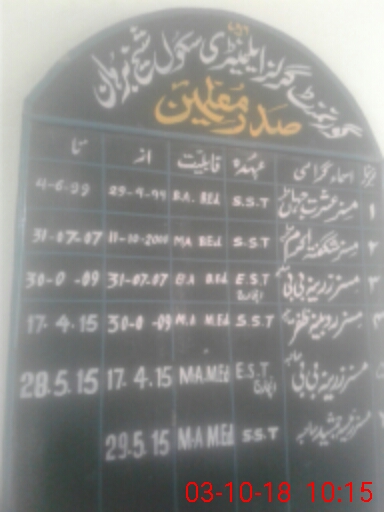 گورنمنٹ گرلز ایلیمنٹری سکول شیخ برہان
صدر معلمین
اسماء گرامی عہدہ قابلیت از تا
۱ مسز عشرت جہاں S.S.T B.A. B.Ed. 29-4-99 4-6-99
۲ مسز شگفتہ اکرم S.S.T M.A B.Ed. 11-10-2000 31-07-07
۳ مسز زرینہ بی بی E.S.T انچارج B.A B.Ed. 31-07-07 30-0 -09
۴ مسز روبینہ ظفر S.S.T M.A M.Ed 30-0 -09 17.4.15
مسز زرینہ بی بی صاحبہ E.S.T انچارج M.A.M.Ed 17.4.15 28.5.15
مسز جمشید صاحبہ S.S.T M.A M.Ed 29.5.15
03-10-18 10:15